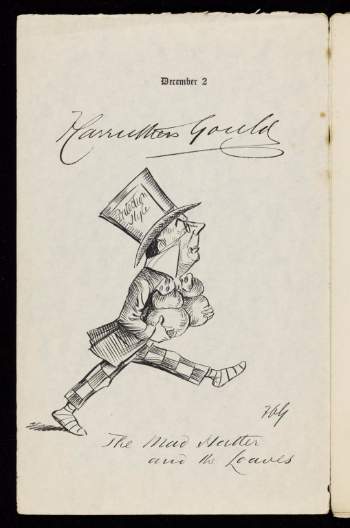 December 2
Harrutters Gould
Protection
Hype
FCG
The Mad Hatter
and the Loaves